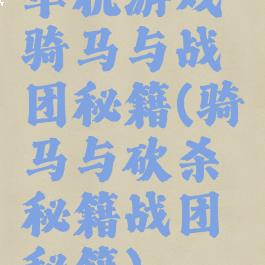 单机游戏
骑马与战
团秘籍(骑
马与砍杀
秘籍战团
秘籍)